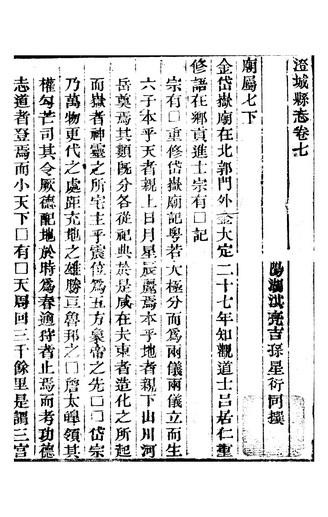 澄城縣志卷七
陽湖洪亮吉孫星衍同撰
廟屬七下
金岱嶽廟在北郭門外金大定二十七年知觀道士呂居仁重
修語在鄉貢進士宗有□記
宗有□重修岱嶽廟記粤若大極分而為兩儀兩儀立而生
六子本乎天者親上日月星辰麗焉本乎地者親下山川河
岳奠焉其類既分各從祀典於是咸在夫東者造化之所起
而嶽者神靈之所宅主乎震位為五方豪帝之先□□岱宗
乃萬物更代之處距兖地之雄勝亘魯邦之□詹太皥領其
權勾芒司其令厥德配地於時為春適狩者止焉而考功德
志道者登焉而小天下□有□天周回三千餘里是謂三宫